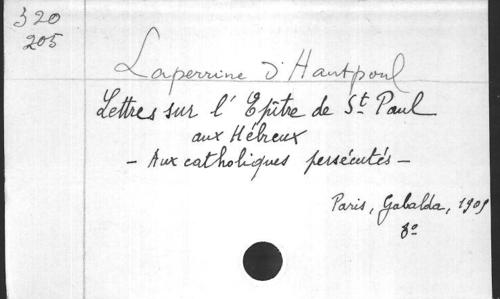 320
205
Laperrine d'Hautpoul
Lettres sur l'Epître de St. Paul
aux Hébreux
- Aux catholiques persécutés -
Paris, Gabalda, 1909
8º